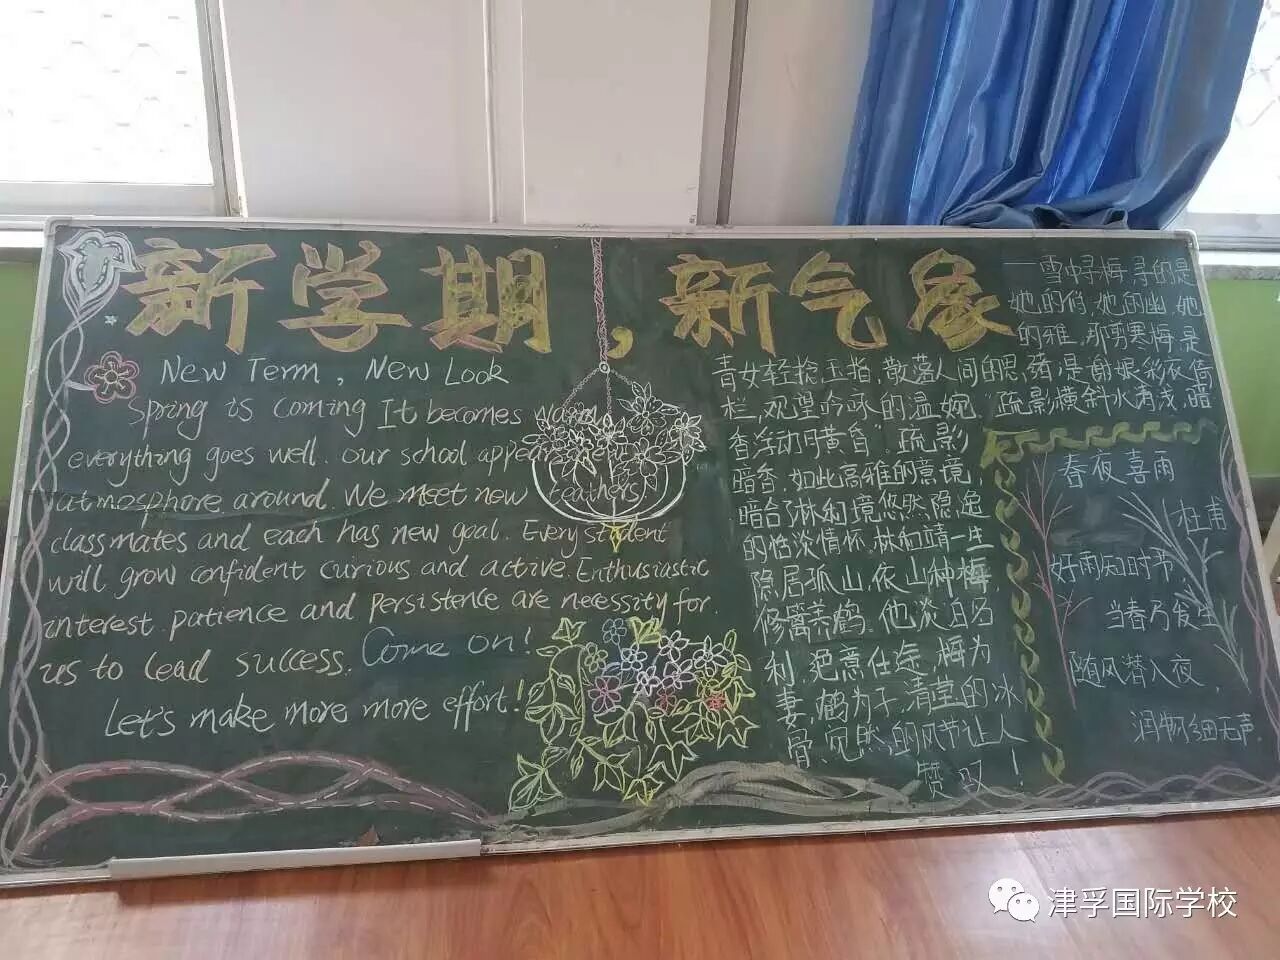 新学期，新气象
New Term, New Look
Spring is coming It becomes warm
everything goes well. our school appears new
atmosphore around. We meet new teathers
classmates and each has new goal. Every student
will grow confident curious and active. Enthusiastic
interest. patience and persistence are necessity for.
us to lead success. Come on!
Let's make more more effort!
一雪中寻梅,寻的是
她的俏,她的幽,她
的雅,那剪寒梅,是
青女轻捻玉指,散落人间的思绪,是谢娘彩衣倚
栏,观望吟咏的温婉"疏影横斜水清浅,暗
香浮动月黄昏"疏影
暗香,如此高雅的意境,
暗合了林和靖悠然隐逸
的恬淡情怀,林和靖一生
隐居孤山,依山种梅,
修篱养鹤。他淡泊名
利,绝意仕途,梅为
妻,鹤为子,清莹的冰
骨,见然,的风节让人
赞叹!
春夜喜雨
杜甫
好雨知时节,
当春乃发生
随风潜入夜,
润物细无声.
津孚国际学校